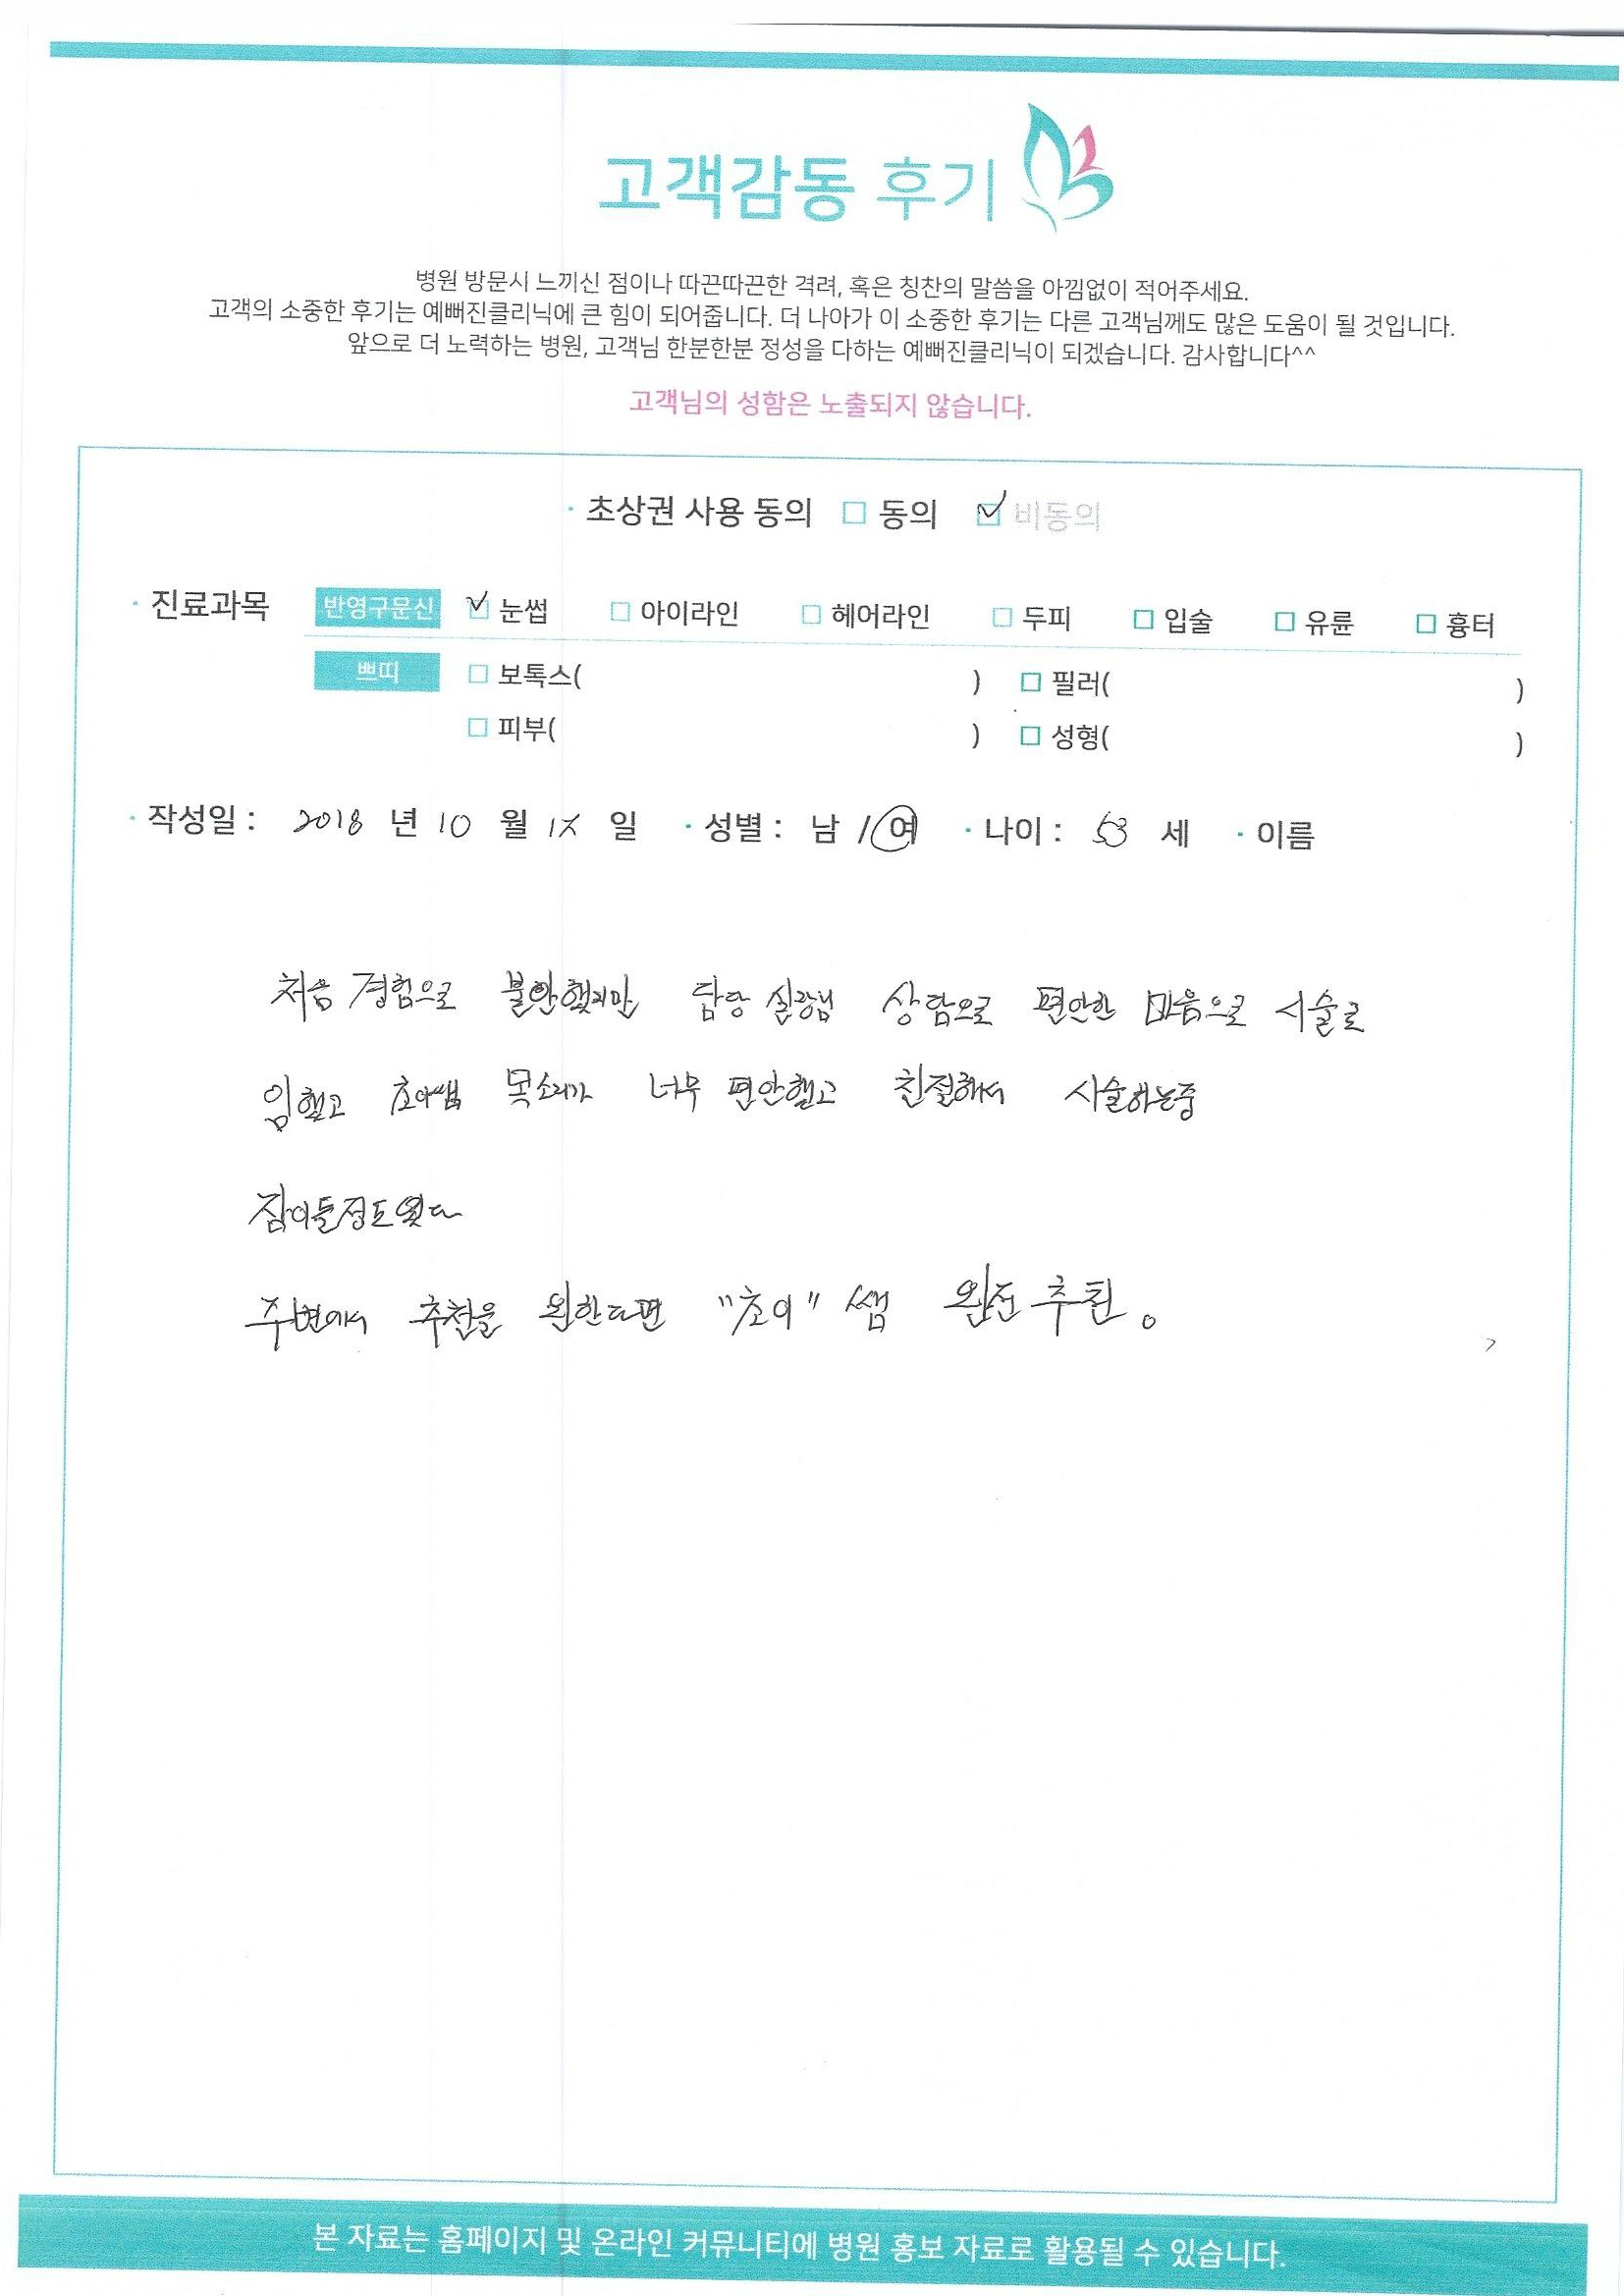 고객감동 후기
병원 방문시 느끼신 점이나 따끈따끈한 격려, 혹은 칭찬의 말씀을 아낌없이 적어주세요.
고객의 소중한 후기는 예뻐진클리닉에 큰 힘이 되어줍니다. 더 나아가 이 소중한 후기는 다른 고객님께도 많은 도움이 될 것입니다.
앞으로 더 노력하는 병원, 고객님 한분한분 정성을 다하는 예뻐진클리닉이 되겠습니다. 감사합니다^^
고객님의 성함은 노출되지 않습니다.
· 초상권 사용 동의 □ 동의 ☑ 비동의
· 진료과목 반영구문신 ☑ 눈썹 □ 아이라인 □ 헤어라인 □ 두피 □ 입술 □ 유륜 □ 흉터
쁘띠 □ 보톡스( ) □ 필러( )
□ 피부( ) □ 성형( )
· 작성일 : 2018 년 10 월 일 · 성별 : 남 / 여 · 나이 : 53 세 · 이름
처음 경험으로 불안했지만 담당 실장님 상담으로 편안한 마음으로 시술로
임했고 목소리가 너무 편안했고 친절해서 시술하는중
잠이들정도였다
주변에서 추천을 원한다면 "초이" 쌤 완전 추천。
본 자료는 홈페이지 및 온라인 커뮤니티에 병원 홍보 자료로 활용될 수 있습니다.